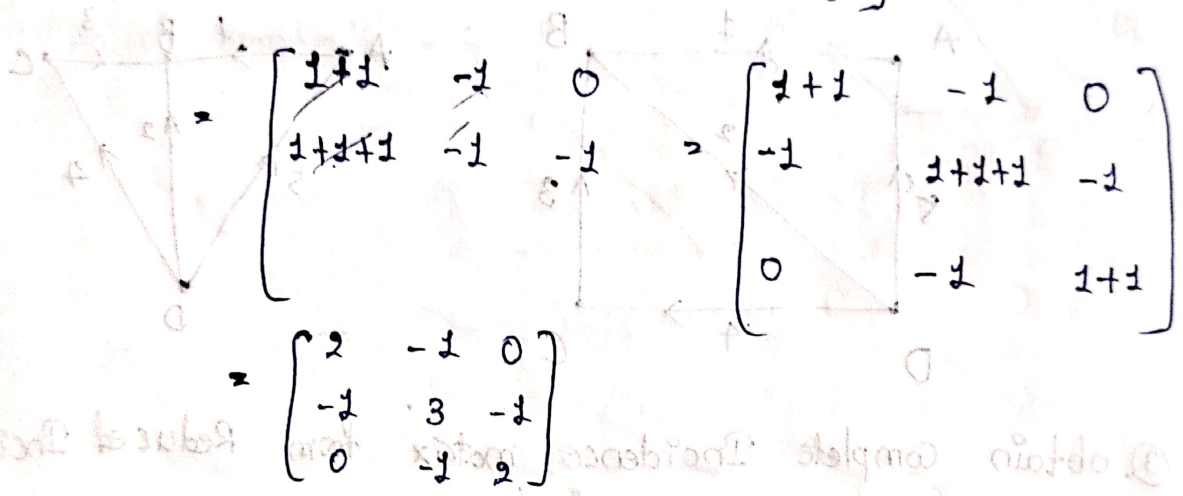 = [ 1+1 -1 0
1+1+1 -1 -1
= [ 1+1 -1 0
-1 1+1+1 -1
0 -1 1+1 ]
= [ 2 -1 0
-1 3 -1
0 -1 2 ]